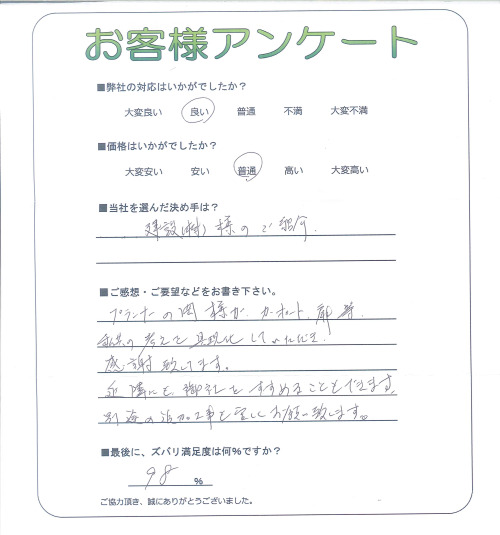 お客様アンケート
■弊社の対応はいかがでしたか？
大変良い 良い 普通 不満 大変不満
■価格はいかがでしたか？
大変安い 安い 普通 高い 大変高い
■当社を選んだ決め手は？
建設(株)様のご紹介.
■ご感想・ご要望などをお書き下さい。
プランナーの岡様が、カーポート、扉等、
私共の考えを具現化していただき、
感謝致してます。
近隣にも御社をすすめることもできます。
の追加工事も宜しくお願い致します。
■最後に、ズバリ満足度は何%ですか？
98 %
ご協力頂き、誠にありがとうございました。